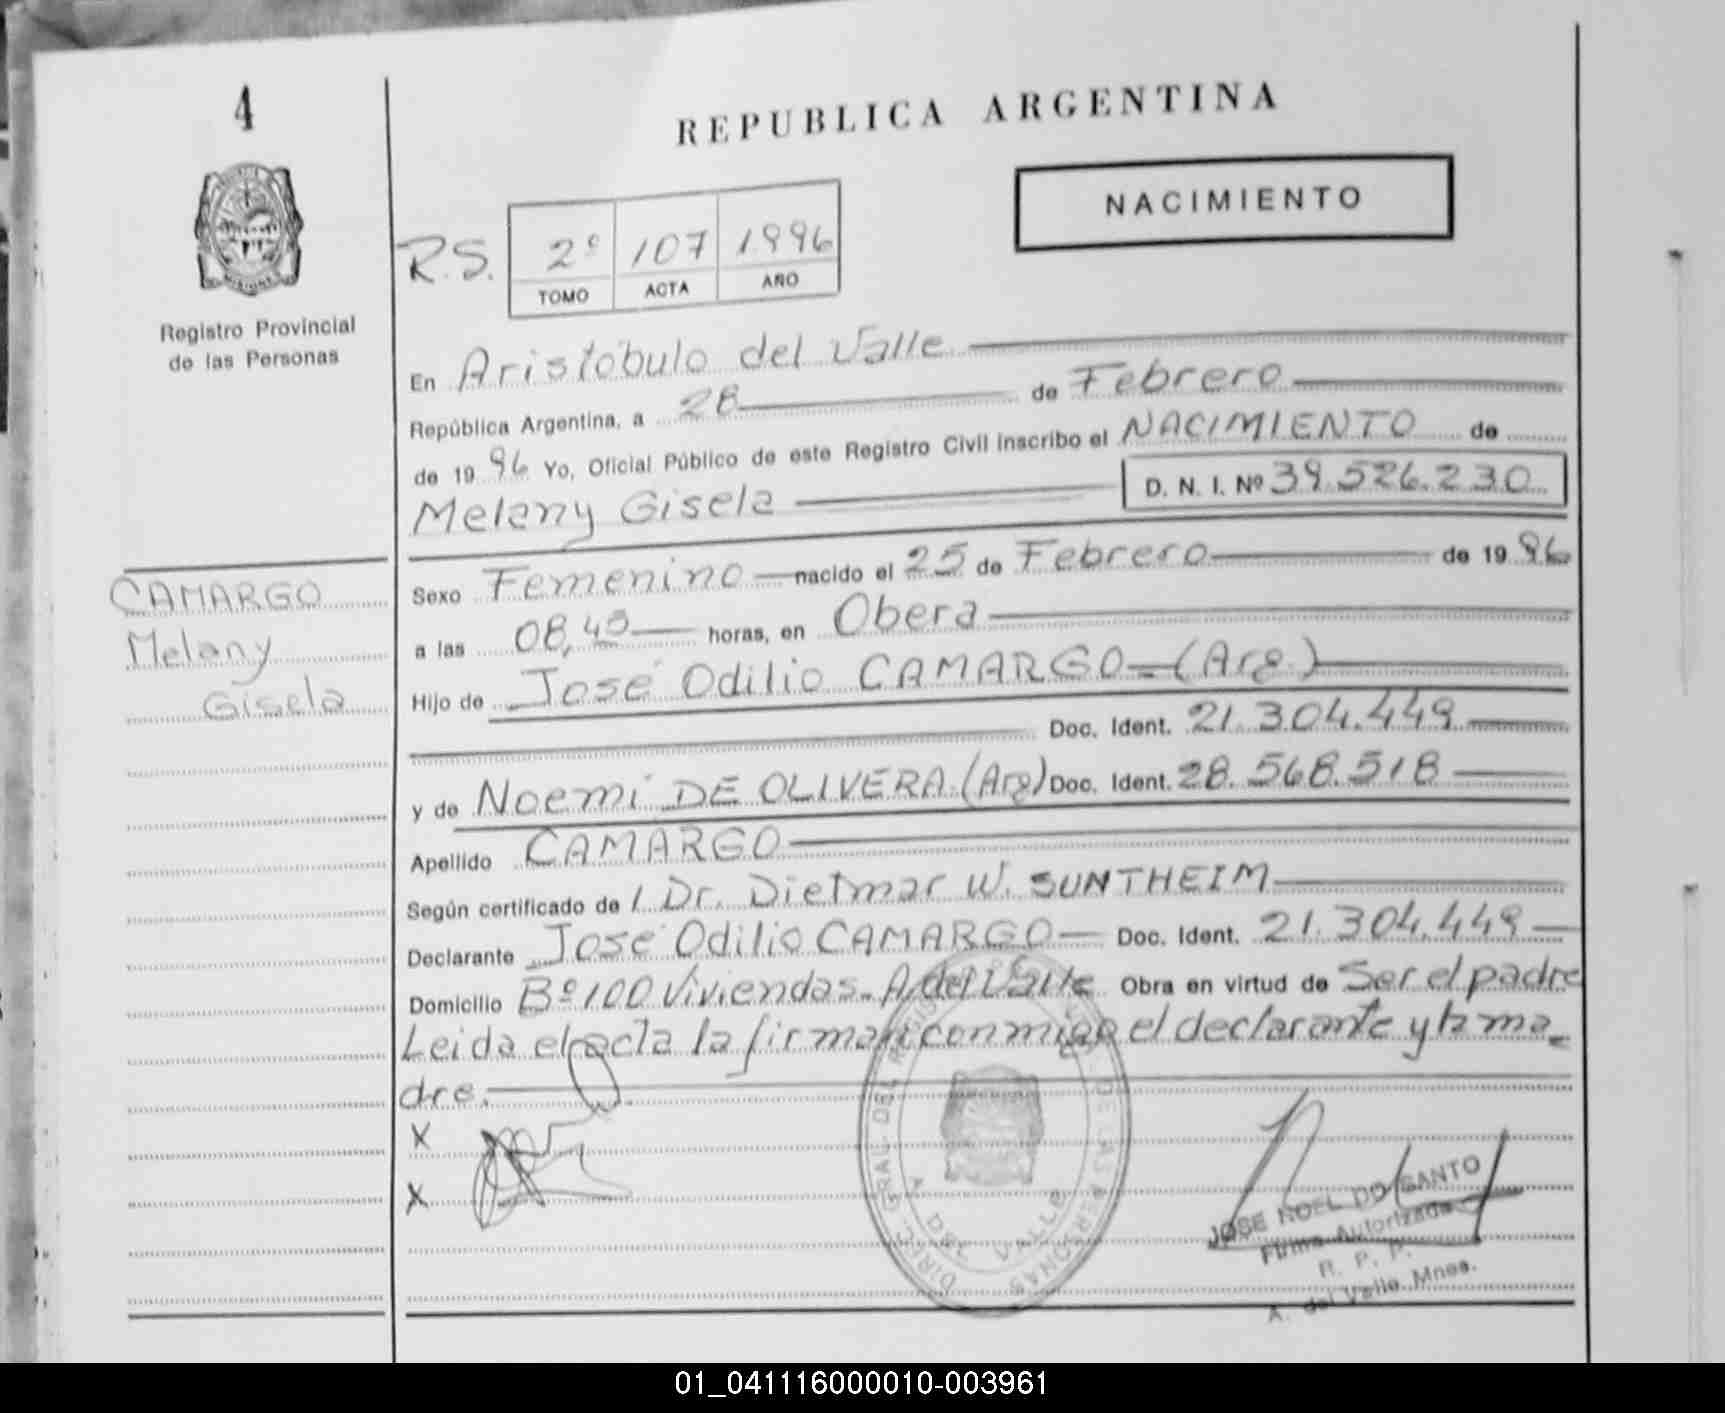 4
REPUBLICA ARGENTINA
NACIMIENTO
R.S. 2º 107 1996
TOMO ACTA AÑO
Registro Provincial
de las Personas
En Aristóbulo del Valle
República Argentina, a 28 de Febrero
de 1996 Yo, Oficial Público de este Registro Civil inscribo el NACIMIENTO de
Melany Gisela D. N. I. Nº 39.526.230
CAMARGO
Melany
Gisela
Sexo Femenino nacido el 25 de Febrero de 1996
a las 08,45 horas, en Obera
Hijo de José Odilio CAMARGO=(Arg.)
Doc. Ident. 21.304.449
y de Noemí DE OLIVERA.(Arg) Doc. Ident. 28.568.518
Apellido CAMARGO
Según certificado de / Dr. Dietmar W. SUNTHEIM
Declarante José Odilio CAMARGO Doc. Ident. 21.304.449
Domicilio Bº 100 Viviendas. A. del Valle Obra en virtud de Ser el padre
Leida el acta la firman conmigo el declarante y la ma-
dre.
X
X
DIREC. GRAL. DEL REGISTRO DE LAS PERSONAS
A. DEL VALLE
JOSE NOEL DO SANTO
Firma Autorizada
R. P. P.
A. del Valle Mnes.
01_041116000010-003961